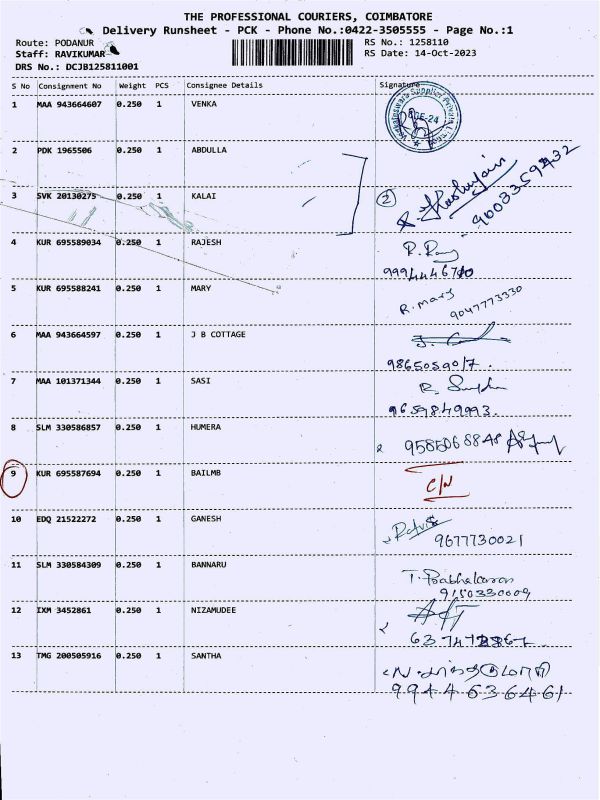 THE PROFESSIONAL COURIERS, COIMBATORE
Delivery Runsheet - PCK - Phone No.:0422-3505555 - Page No.:1
Route: PODANUR RS No.: 1258110
Staff: RAVIKUMAR RS Date: 14-Oct-2023
DRS No.: DCJB125811001
S No Consignment No Weight PCS Consignee Details Signature
1 MAA 943664607 0.250 1 VENKA
2 PDK 1965506 0.250 1 ABDULLA
3 SVK 20130275 0.250 1 KALAI 2
4 KUR 695589034 0.250 1 RAJESH
5 KUR 695588241 0.250 1 MARY R. mary
9047773330
6 MAA 943664597 0.250 1 J B COTTAGE
9865059017.
7 MAA 101371344 0.250 1 SASI
9659849993.
8 SLM 330586857 0.250 1 HUMERA
9585068848
9 KUR 695587694 0.250 1 BAILMB C/N
10 EDQ 21522272 0.250 1 GANESH
9677730021
11 SLM 330584309 0.250 1 BANNARU T. Prabhakaran
9150330009
12 IXM 3452861 0.250 1 NIZAMUDEE
13 TMG 200505916 0.250 1 SANTHA
9944636461